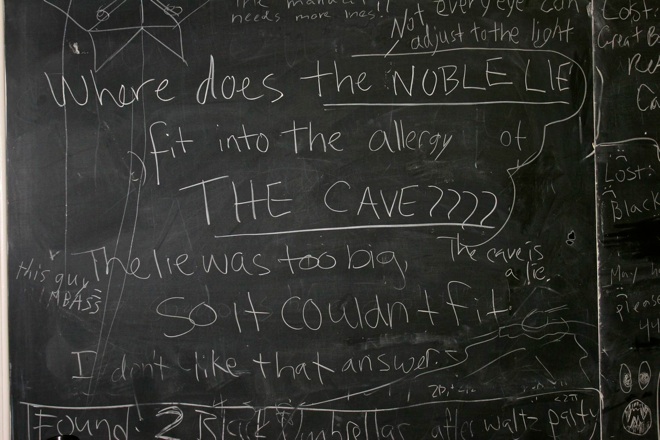 needs more lines!!
Not every eye can
adjust to the light
Where does the NOBLE LIE
fit into the allergy of
THE CAVE????
The lie was too big,
The cave is
a lie.
this guy
So it couldn't fit
I don't like that answer.
Found: 2 Black Umbrellas after waltz party
Lost:
Great
Lost:
Black
May
please